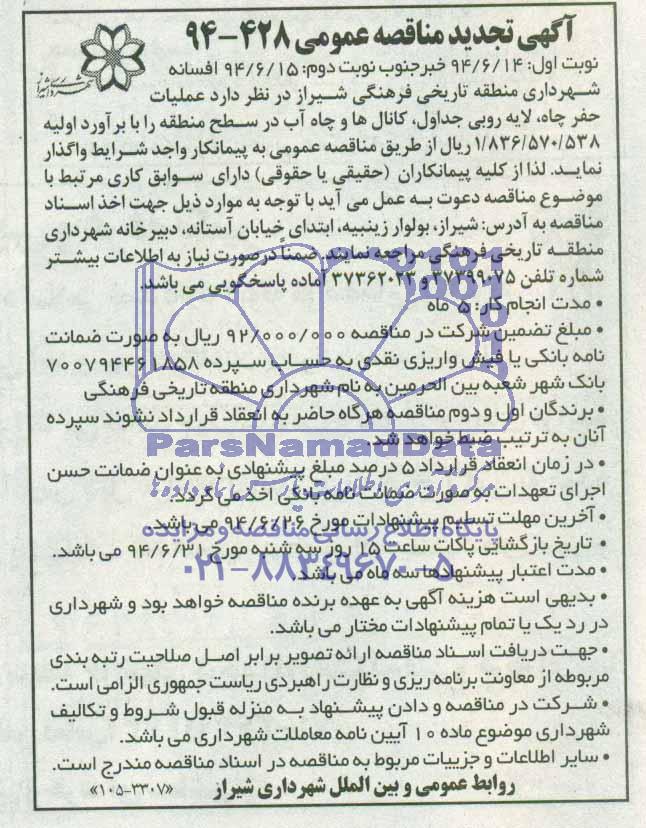 آگهی تجدید مناقصه عمومی ۴۲۸-۹۴
شهرداری شیراز
نوبت اول: ۹۴/۶/۱۴ خبرجنوب نوبت دوم: ۹۴/۶/۱۵ افسانه
شهرداری منطقه تاریخی فرهنگی شیراز در نظر دارد عملیات
حفر چاه، لایه روبی جداول، کانال ها و چاه آب در سطح منطقه را با برآورد اولیه
۱/۸۳۶/۵۷۰/۵۳۸ ریال از طریق مناقصه عمومی به پیمانکار واجد شرایط واگذار
نماید. لذا از کلیه پیمانکاران (حقیقی یا حقوقی) دارای سوابق کاری مرتبط با
موضوع مناقصه دعوت به عمل می آید با توجه به موارد ذیل جهت اخذ اسناد
مناقصه به آدرس: شیراز، بولوار زینبیه، ابتدای خیابان آستانه، دبیرخانه شهرداری
منطقه تاریخی فرهنگی مراجعه نمایند. ضمناً درصورت نیاز به اطلاعات بیشتر
شماره تلفن ۳۷۳۹۹۰۷۵ و ۳۷۳۶۲۰۲۳ آماده پاسخگویی می باشد.
• مدت انجام کار: ۵ ماه
• مبلغ تضمین شرکت در مناقصه ۹۲/۰۰۰/۰۰۰ ریال به صورت ضمانت
نامه بانکی یا فیش واریزی نقدی به حساب سپرده ۷۰۰۷۹۴۴۶۱۸۵۸
بانک شهر شعبه بین الحرمین به نام شهرداری منطقه تاریخی فرهنگی
• برندگان اول و دوم مناقصه هرگاه حاضر به انعقاد قرارداد نشوند سپرده
آنان به ترتیب ضبط خواهد شد.
ParsNamadData
• در زمان انعقاد قرارداد ۵ درصد مبلغ پیشنهادی به عنوان ضمانت حسن
اجرای تعهدات به صورت ضمانت نامه بانکی اخذ می گردد.
• آخرین مهلت تسلیم پیشنهادات مورخ ۹۴/۶/۲۶ می باشد.
پایگاه اطلاع رسانی مناقصه و مزایده
• تاریخ بازگشایی پاکات ساعت ۱۵ روز سه شنبه مورخ ۹۴/۶/۳۱ می باشد.
• مدت اعتبار پیشنهادها سه ماه می باشد.
۰۲۱-۸۸۳۴۹۶۷۰-۵
• بدیهی است هزینه آگهی به عهده برنده مناقصه خواهد بود و شهرداری
در رد یک یا تمام پیشنهادات مختار می باشد.
• جهت دریافت اسناد مناقصه ارائه تصویر برابر اصل صلاحیت رتبه بندی
مربوطه از معاونت برنامه ریزی و نظارت راهبردی ریاست جمهوری الزامی است.
• شرکت در مناقصه و دادن پیشنهاد به منزله قبول شروط و تکالیف
شهرداری موضوع ماده ۱۰ آیین نامه معاملات شهرداری می باشد.
• سایر اطلاعات و جزییات مربوط به مناقصه در اسناد مناقصه مندرج است.
روابط عمومی و بین الملل شهرداری شیراز «۳۳۰۷-۱۰۵»